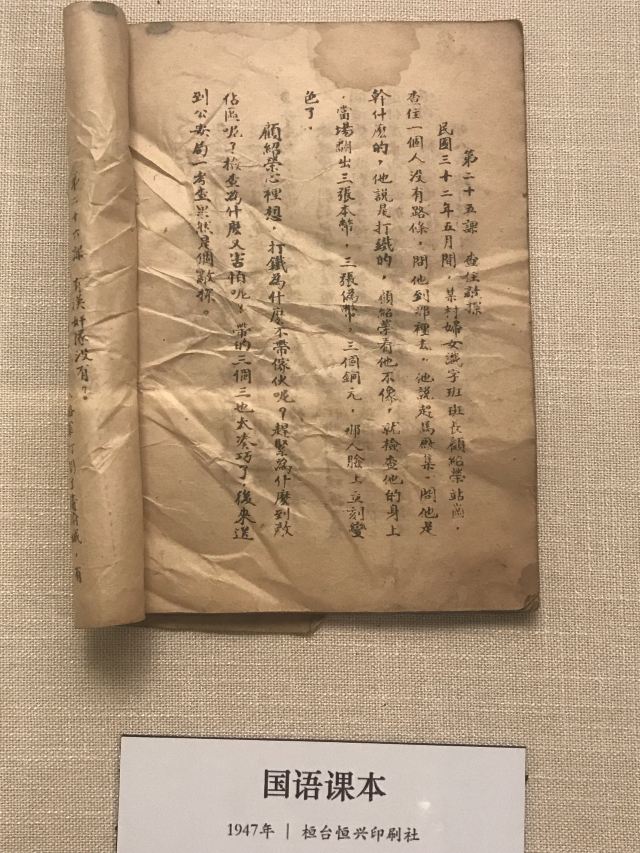 第二十五課 查住敵探
民國三十二年五月間，某村婦女識字班班長顧紹榮站崗，
查住一個人没有路條，問他到那裡去，他説趕馬厰集。問他是
幹什麽的，他説是打鐵的，顧紹榮看他不像，就檢查他的身上
，當場翻出三張本幣，三張偽幣，三個銅元，那人臉上立刻變
色了。
顧紹榮心裡想，打鐵為什麽不帶傢伙呢？趕緊為什麽到敵
佔區呢？檢查為什麽又害怕呢！帶的三個三也太凑巧了，後來送
到公安局一考查果然是個敵探。
第二十六課 有漢奸隊没有？
国语课本
1947年 | 桓台恒兴印刷社